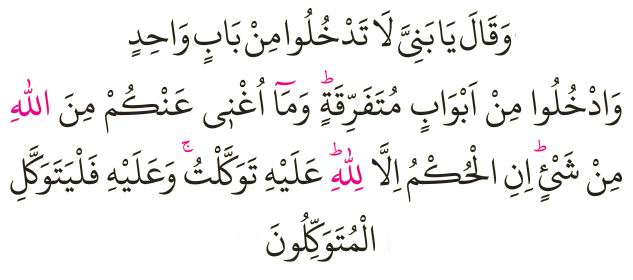 وَقَالَ يَا بَنِىَّ لَا تَدْخُلُوا مِنْ بَابٍ وَاحِدٍ
وَادْخُلُوا مِنْ اَبْوَابٍ مُتَفَرِّقَةٍۜ وَمَآ اُغْنٖى عَنْكُمْ مِنَ اللّٰهِ
مِنْ شَىْءٍۜ اِنِ الْحُكْمُ اِلَّا لِلّٰهِۜ عَلَيْهِ تَوَكَّلْتُۚ وَعَلَيْهِ فَلْيَتَوَكَّلِ
الْمُتَوَكِّلُونَ